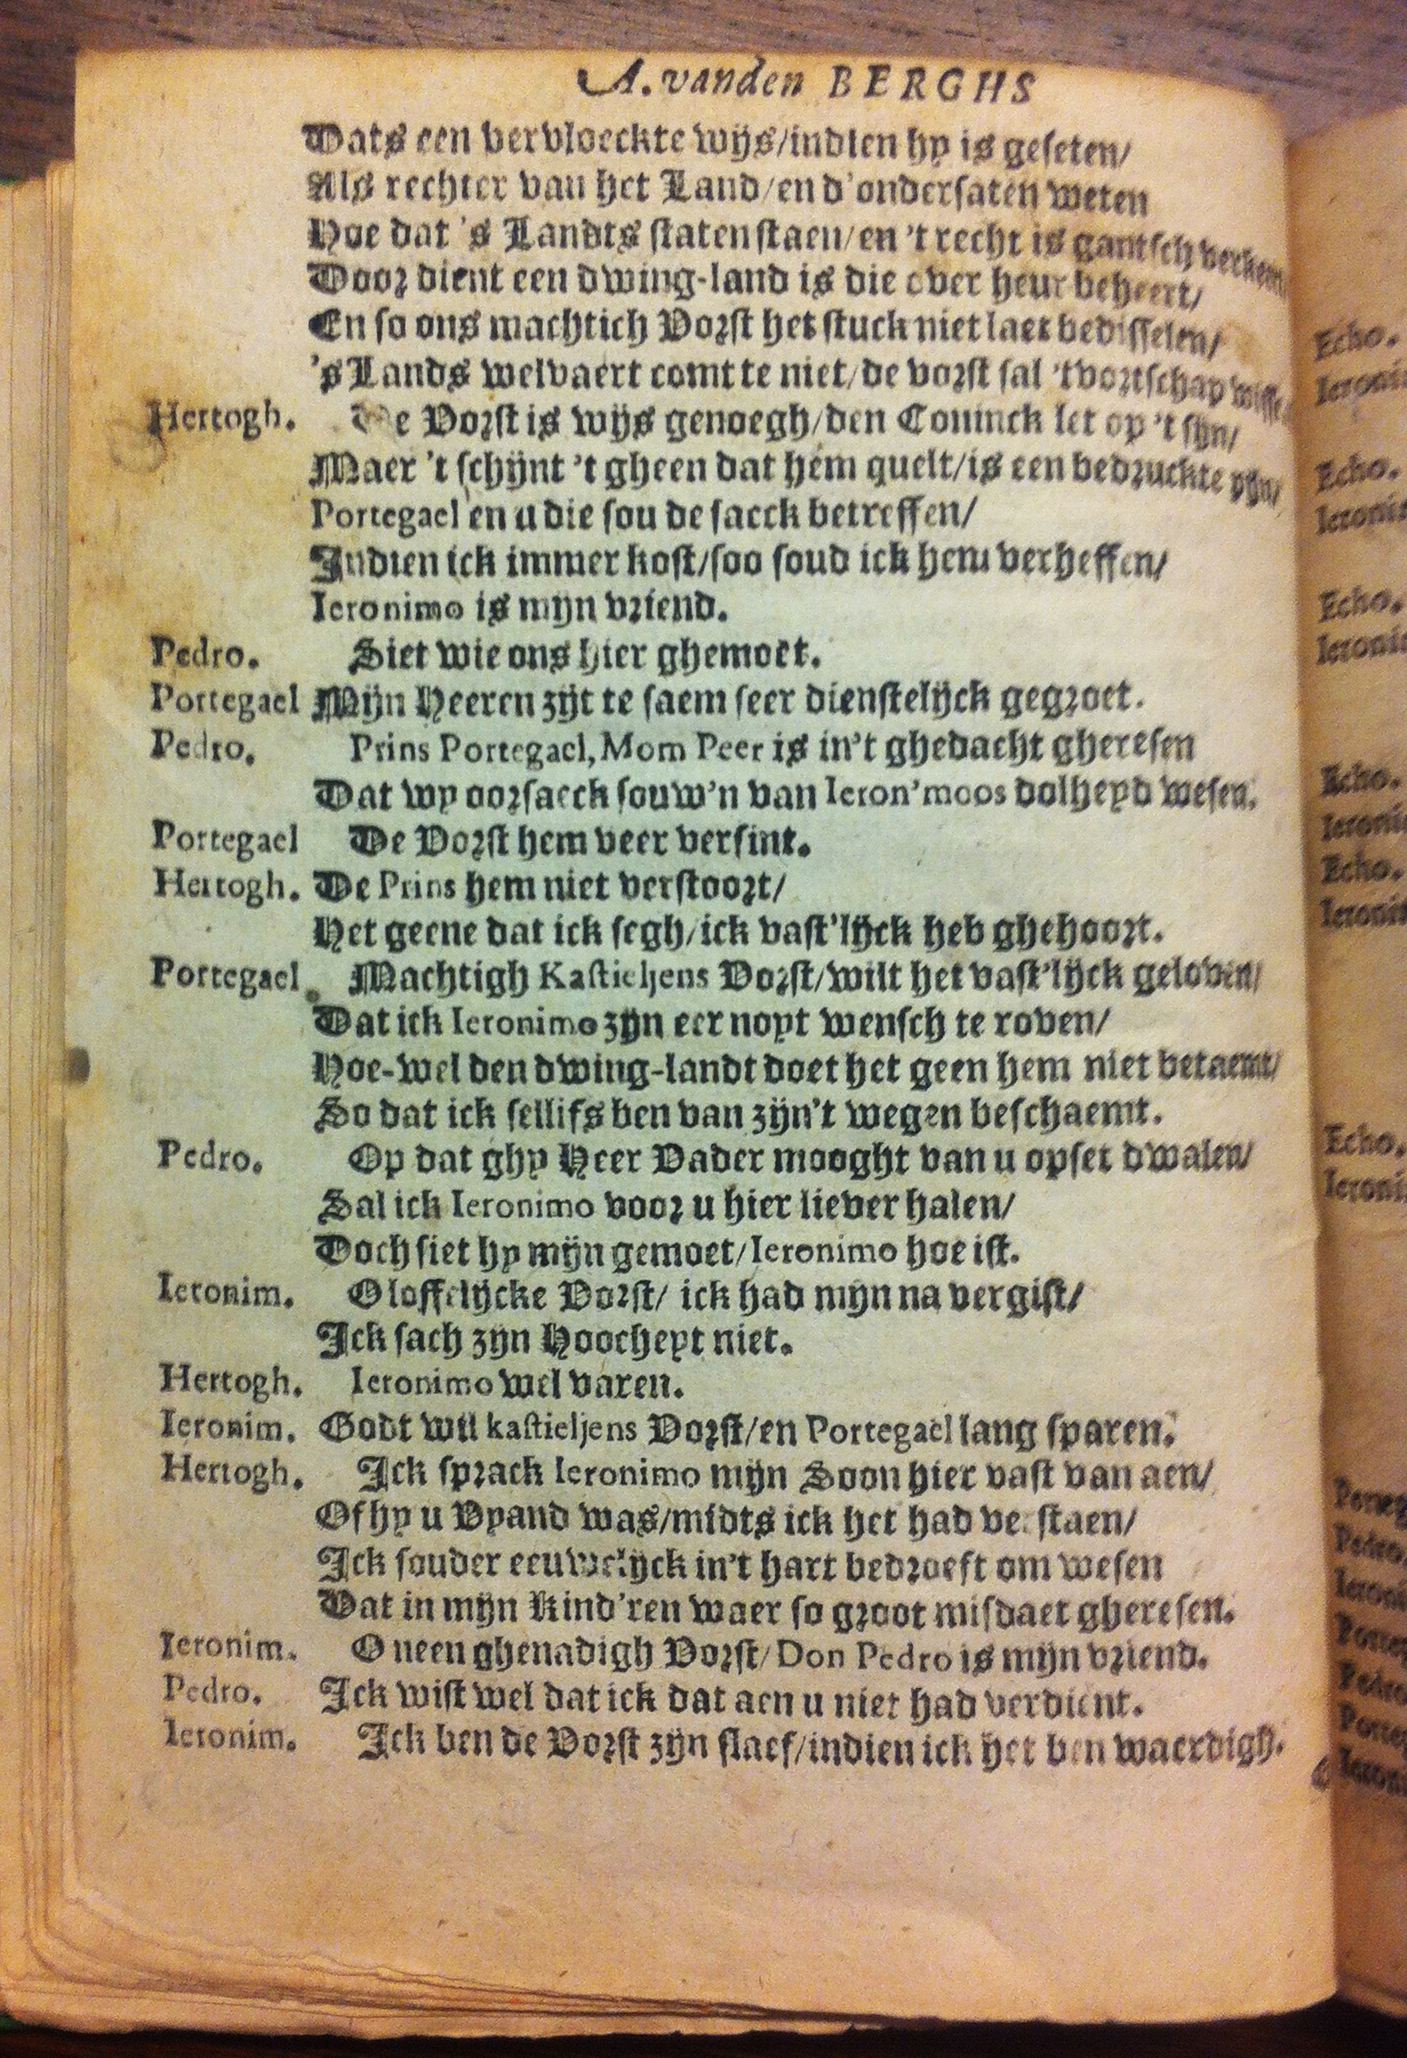 A. vanden BERGHS
Dats een vervloeckte wijs/indien hy is geseten/
Als rechter van het Land/en d'ondersaten weten
Hoe dat 's Landts staten staen/en 't recht is gantsch verkeert
Door dient een dwing-land is die over heur beheert/
En so ons machtich Vorst het stuck niet laet bedisselen/
's Lands welvaert comt te niet/de vorst sal 't vortschap
Hertogh. De Vorst is wijs genoegh/den Coninck let op 't sijn/
Maer 't schijnt 't gheen dat hem quelt/is een bedruckte pijn/
Portegael en u die sou de saeck betreffen/
Indien ick immer kost/soo soud ick hem verheffen/
Ieronimo is mijn vriend.
Pedro. Siet wie ons hier ghemoet.
Portegael Mijn Heeren zijt te saem seer dienstelijck gegroet.
Pedro. Prins Portegael, Mom Peer is in't ghedacht gheresen
Dat wy oorsaeck souw'n van Ieron'moos dolheyd wesen.
Portegael De Vorst hem veer versint.
Hertogh. De Prins hem niet verstoort/
Het geene dat ick segh/ick vast'lijck heb ghehoort.
Portegael. Machtigh Kastieljens Vorst/wilt het vast'lijck geloven/
Dat ick Ieronimo zijn eer noyt wensch te roven/
Hoe-wel den dwing-landt doet het geen hem niet betaemt/
So dat ick sellifs ben van zijn't wegen beschaemt.
Pedro. Op dat ghy Heer Vader mooght van u opset dwalen/
Sal ick Ieronimo voor u hier liever halen/
Doch siet hy mijn gemoet/Ieronimo hoe ist.
Ieronim. O loffelijcke Vorst/ ick had mijn na vergist/
Ick sach zijn Hoocheyt niet.
Hertogh. Ieronimo wel varen.
Ieronim. Godt wil kastieljens Vorst/en Portegael lang sparen.
Hertogh. Ick sprack Ieronimo mijn Soon hier vast van aen/
Of hy u Vyand was/midts ick het had verstaen/
Ick souder eeuwelijck in't hart bedroeft om wesen
Dat in mijn Kind'ren waer so groot misdaet gheresen.
Ieronim. O neen ghenadigh Vorst/Don Pedro is mijn vriend.
Pedro. Ick wist wel dat ick dat aen u niet had verdient.
Ieronim. Ick ben de Vorst zijn slaef/indien ick het ben waerdigh.
Echo.
Echo.
Echo.
Echo.
Echo.
Echo.